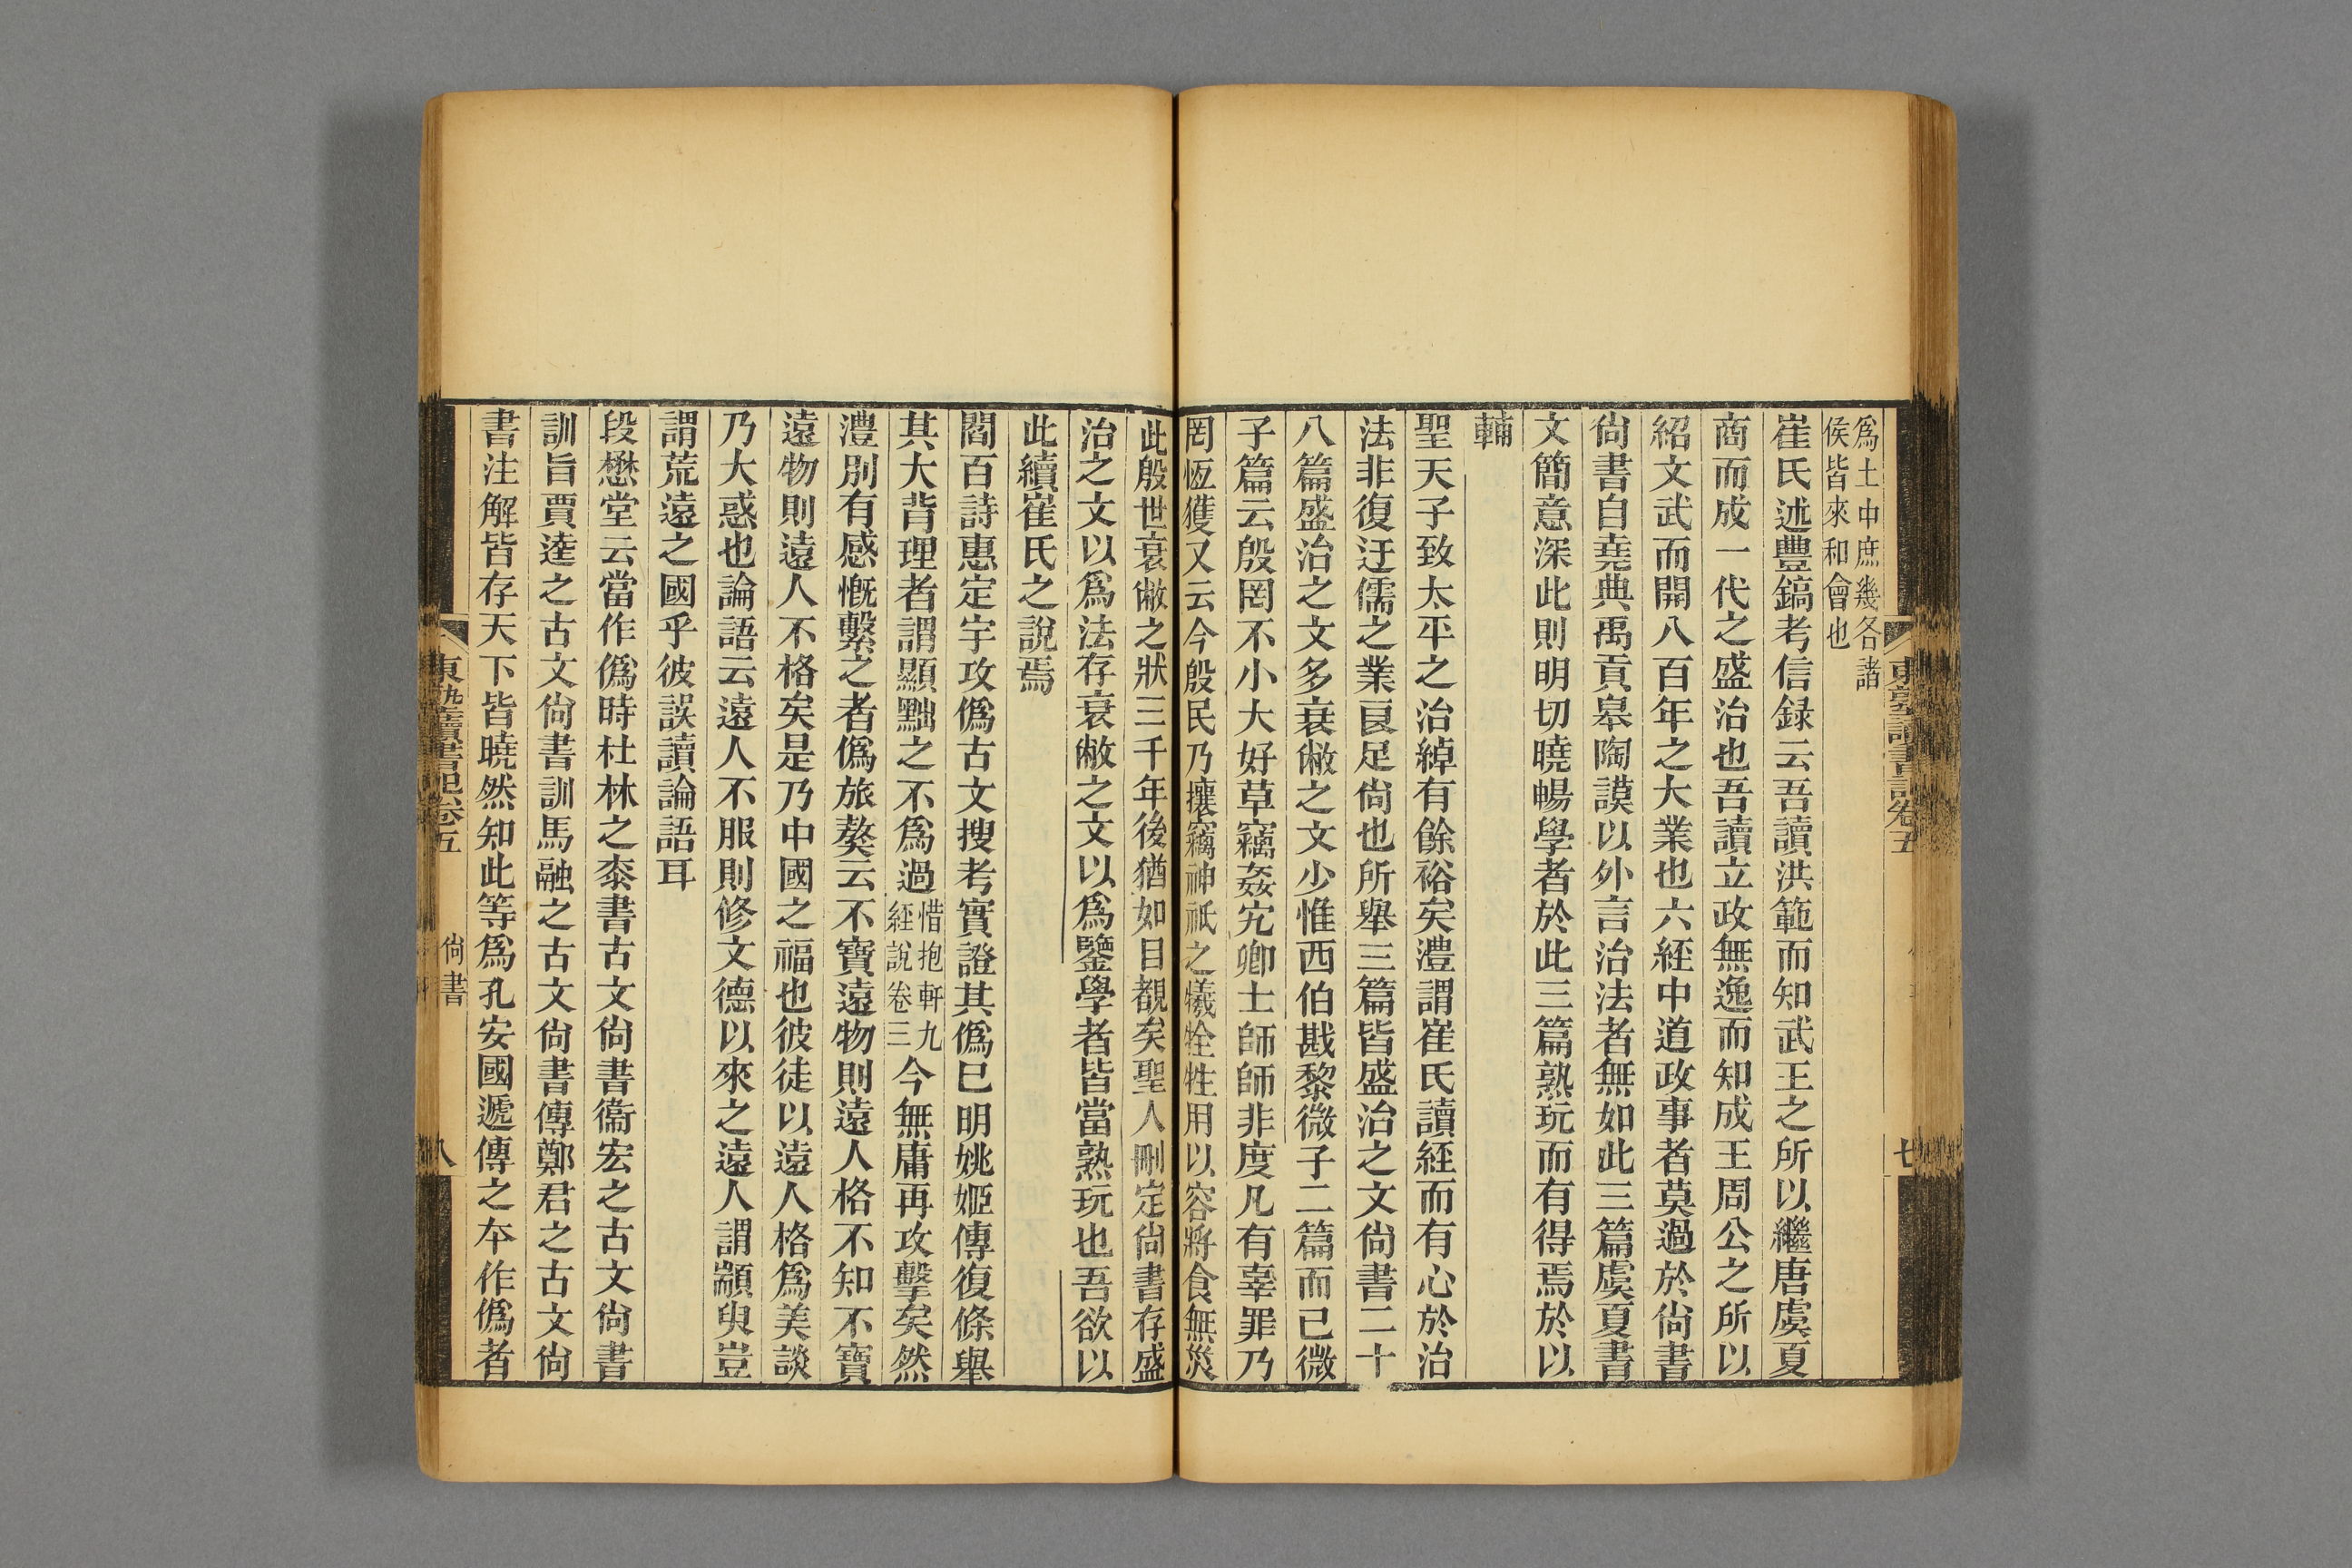 爲土中庶幾各諸
侯皆來和會也
崔氏述豐鎬考信録云吾讀洪範而知武王之所以繼唐虞夏
商而成一代之盛治也吾讀立政無逸而知成王周公之所以
紹文武而開八百年之大業也六經中道政事者莫過於尙書
尙書自堯典禹貢皋陶謨以外言治法者無如此三篇虞夏書
文簡意深此則明切曉暢學者於此三篇熟玩而有得焉於以
輔
聖天子致太平之治綽有餘裕矣澧謂崔氏讀經而有心於治
法非復迂儒之業良足尙也所舉三篇皆盛治之文尙書二十
八篇盛治之文多衰敝之文少惟西伯戡黎微子二篇而已微
子篇云殷罔不小大好草竊姦宄卿士師師非度凡有辜罪乃
罔恆獲又云今殷民乃攘竊神祇之犧牷牲用以容將食無災
此殷世衰敝之狀三千年後猶如目覩矣聖人刪定尙書存盛
治之文以爲法存衰敝之文以爲鑒學者皆當熟玩也吾欲以
此續崔氏之說焉
閻百詩惠定宇攻僞古文搜考實證其僞已明姚姬傳復條舉
其大背理者謂顯黜之不爲過
惜抱軒九
經說卷三
今無庸再攻擊矣然
澧別有感慨繫之者僞旅獒云不寶遠物則遠人格不知不寶
遠物則遠人不格矣是乃中國之福也彼徒以遠人格爲美談
乃大惑也論語云遠人不服則修文德以來之遠人謂顓臾豈
謂荒遠之國乎彼誤讀論語耳
段懋堂云當作僞時杜林之桼書古文尙書衞宏之古文尙書
訓旨賈逵之古文尙書訓馬融之古文尙書傳鄭君之古文尙
書注解皆存天下皆曉然知此等爲孔安國遞傳之本作僞者
東塾讀書記卷五
七
東塾讀書記卷五
尙書
八